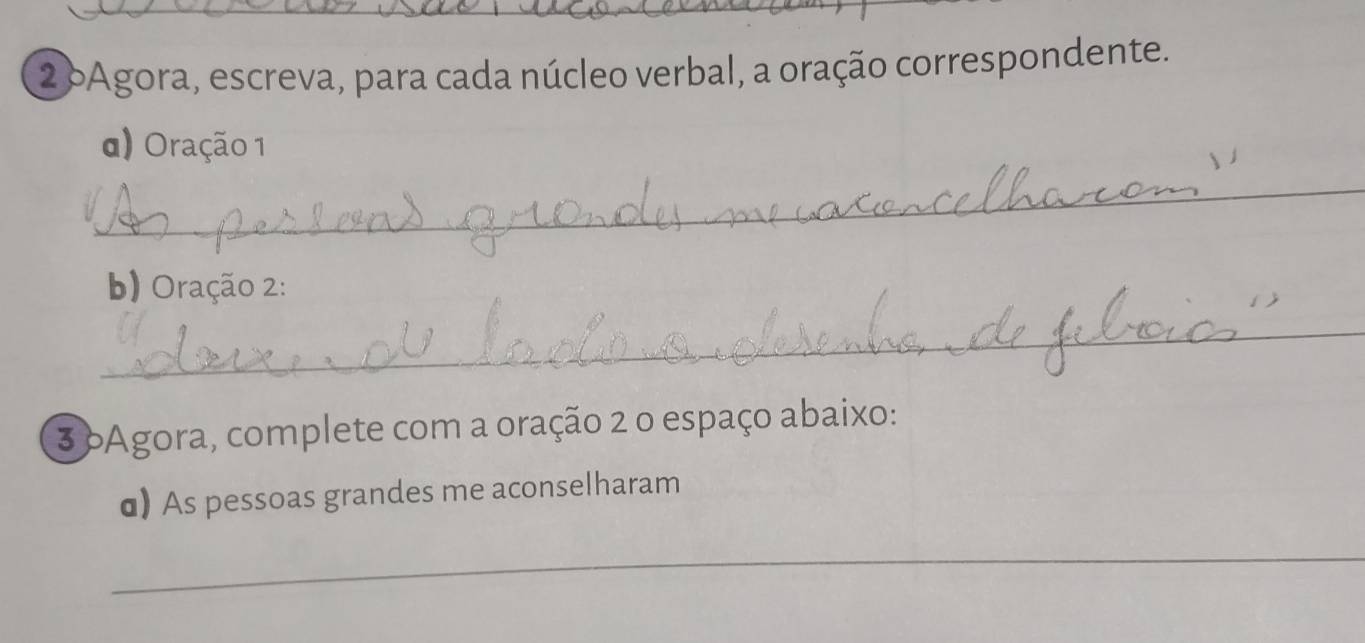 2 Agora, escreva, para cada núcleo verbal, a oração correspondente.
a) Oração 1
"As pessoas grandes me aconcelharam"
b) Oração 2:
"deixe ou lado o desenho de"
3 Agora, complete com a oração 2 o espaço abaixo:
a) As pessoas grandes me aconselharam